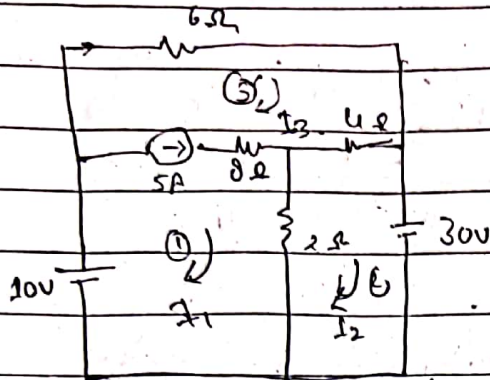 6Ω
③
I3 4Ω
5A 8Ω
① 2Ω 30V
10V
I1 ②
I2